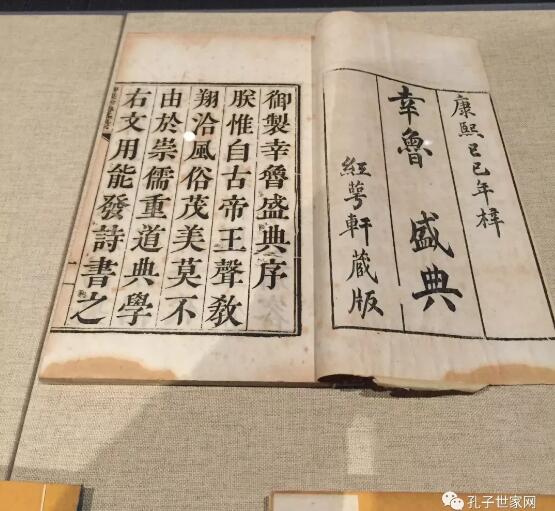 康熙己巳年梓
幸魯盛典
經萼軒藏版
御製幸魯盛典序
朕惟自古帝王聲教
翔洽風俗茂美莫不
由於崇儒重道典學
右文用能發詩書之
孔子世家网